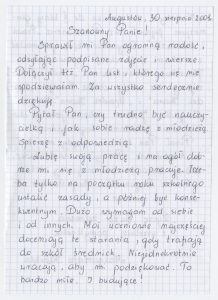 Augustów, 30 sierpnia 2005
Szanowny Panie!
Sprawił mi Pan ogromną radość,
odsyłając podpisane zdjęcie i wiersze.
Dołączył też Pan list, którego się nie
spodziewałam. Za wszystko serdecznie
dziękuję.
Pytał Pan, czy trudno być nauczy-
cielką i jak sobie radzę z młodzieżą.
Śpieszę z odpowiedzią.
Lubię swoją pracę i na ogół dob-
rze mi się z młodzieżą pracuje. Trze-
ba tylko na początku roku szkolnego
ustalić zasady, a później być konse-
kwentnym. Dużo wymagam od siebie
i od innych. Moi uczniowie najczęściej
doceniają te starania, gdy trafiają
do szkół średnich. Niejednokrotnie
wracają, aby mi podziękować. To
bardzo miłe. I budujące!